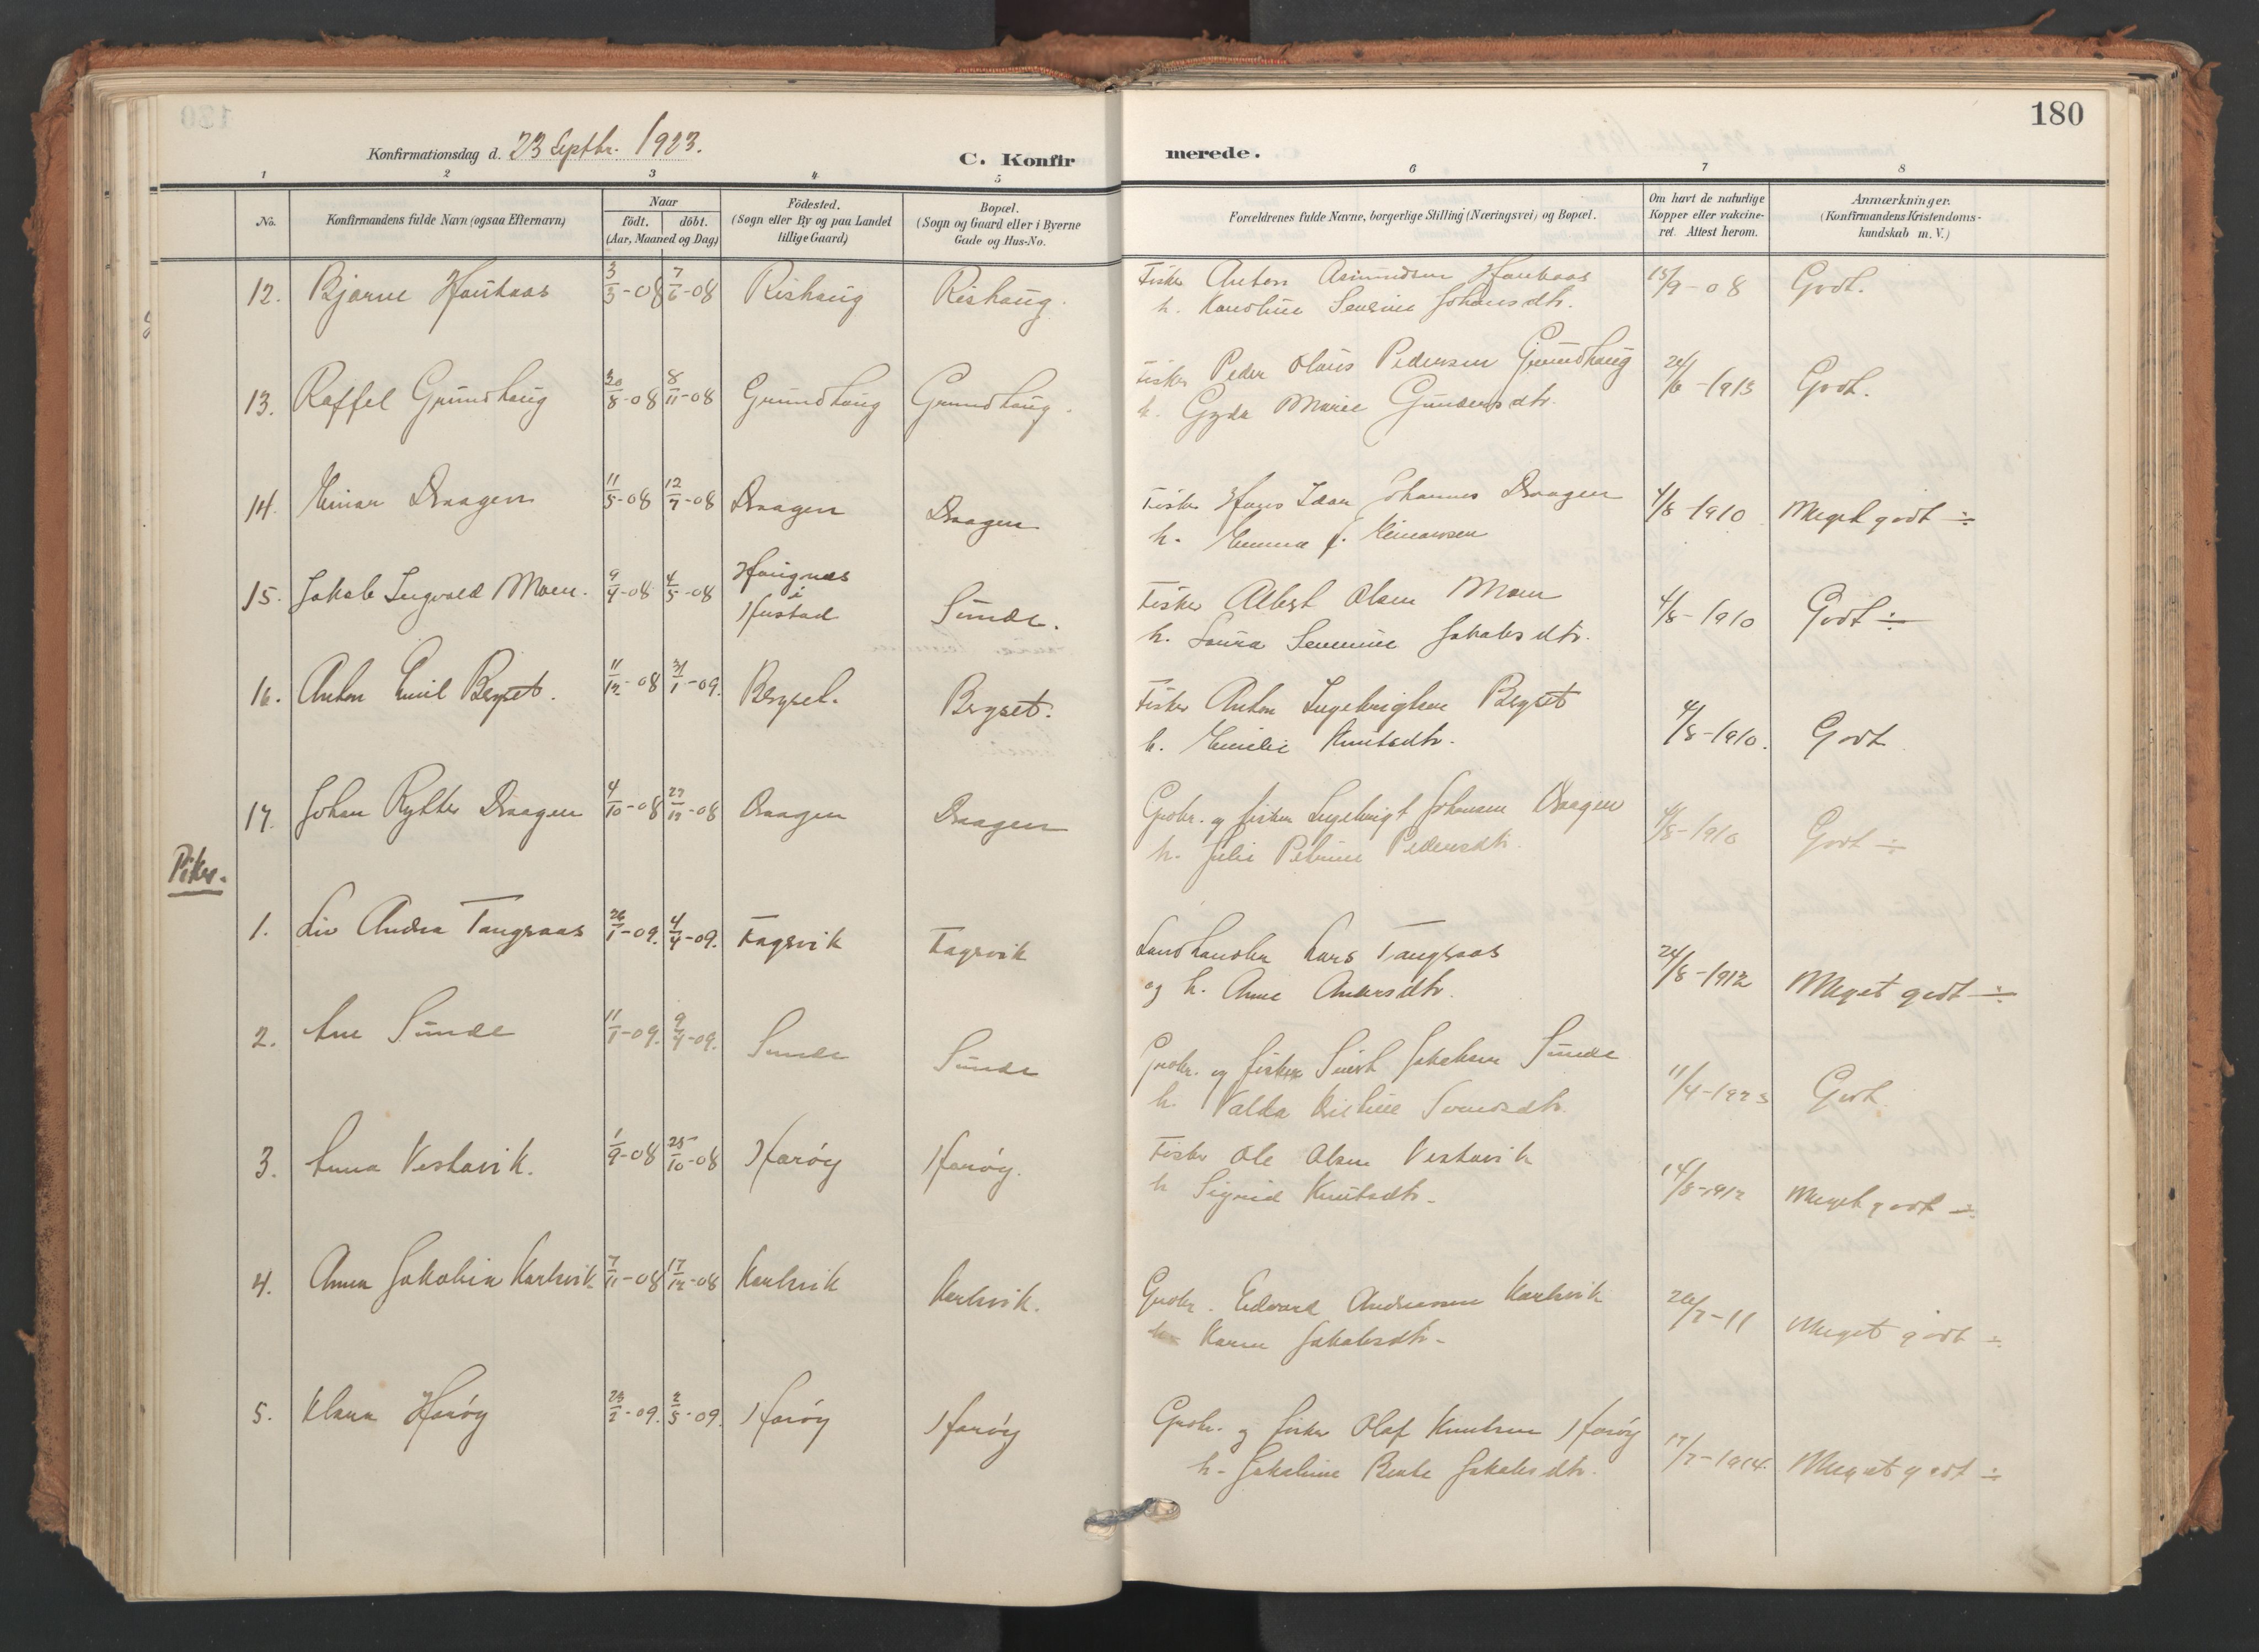 180
Konfirmationsdag d. 23 Septbr. 1923.
C. Konfir
merede.
1 2 3 4 5 6 7 8
No.
Konfirmandens fulde Navn (ogsaa Efternavn)
Naar
födt. döbt.
(Aar, Maaned og Dag)
Födested.
(Sogn eller By og paa Landet
tillige Gaard)
Bopæl.
(Sogn og Gaard eller i Byerne
Gade og Hus-No.
Forældrenes fulde Navne, borgerlige Stilling (Næringsvei) og Bopæl.
Om havt de naturlige
Kopper eller vakcine-
ret. Attest herom.
Anmærkninger.
(Konfirmandens Kristendoms-
kundskab m. V.)
12. Bjarne Haukaas 3/3-08 7/6-08 Rishaug Rishaug. Fisker Anton Asmundsen Haukaas 15/9-08 Godt.
h. Karoline Severine Johansdtr.
13. Raffel Grundhaug 30/8-08 8/11-08 Grundhaug Grundhaug. Fisker Peder Olaus Pedersen Grundhaug 1913 Godt.
h. Gyda Marie Gundersdtr.
14. Einar Draagen 11/5-08 12/7-08 Draagen Draagen Fisker Hans Johannes Draagen 4/8-1910 Meget godt ÷
h. Emma f. Einarsen
15. Jakob Ingvald Moen. 9/4-08 4/5-08 Haugnes
i
Hustad Sunde. Fisker Albert Olsen Moen 4/8-1910 Godt ÷
h. Laura Jakobsdtr.
16. Anton Emil Bergset. 11/12-08 31/1-09. Bergset. Bergset. Fisker Anton Ingebrigtsen Bergset 4/8-1910. Godt
h. Emilie Knutsdtr.
17. Johan Rytter Draagen 4/10-08 27/12-08 Draagen Draagen Gaardbr. og fisker Ingebrigt Johansen Draagen 4/8-1910 Godt ÷
h. Julie Petrine Pedersdtr.
Piker.
1. Liv Andrea Tangraas 26/1-09. 4/4-09. Fagervik Fagervik Landhandler Lars Tangraas 24/8-1912 Meget godt ÷
og h. Anne Andersdtr.
2. Ane Sunde 11/1-09. 9/4-09. Sunde Sunde Gaardbr. og fisker Sivert Jakobsen Sunde 11/4-1923 Godt
h. Valda Kristine
3. Anna Vestavik. 1/9-08 25/10-08 Harøy Harøy. Fisker Ole Olsen Vestavik 14/8-1912 Meget godt ÷
h. Sigrid Knutsdtr.
4. Anna Jakobin Karlsvik 7/11-08 17/12-08 Karlsvik Karlsvik. Gaardbr. Edvard Andreassen Karlsvik 26/7-11 Meget godt ÷
h. Karen Jakobsdtr.
5. Klara Harøy 23/2-09. 2/5-09. Harøy Harøy Gaardbr. og fisker Olaf Knutsen Harøy 17/7-1914. Meget godt ÷
h. Jakobine Berta Jakobsdtr.